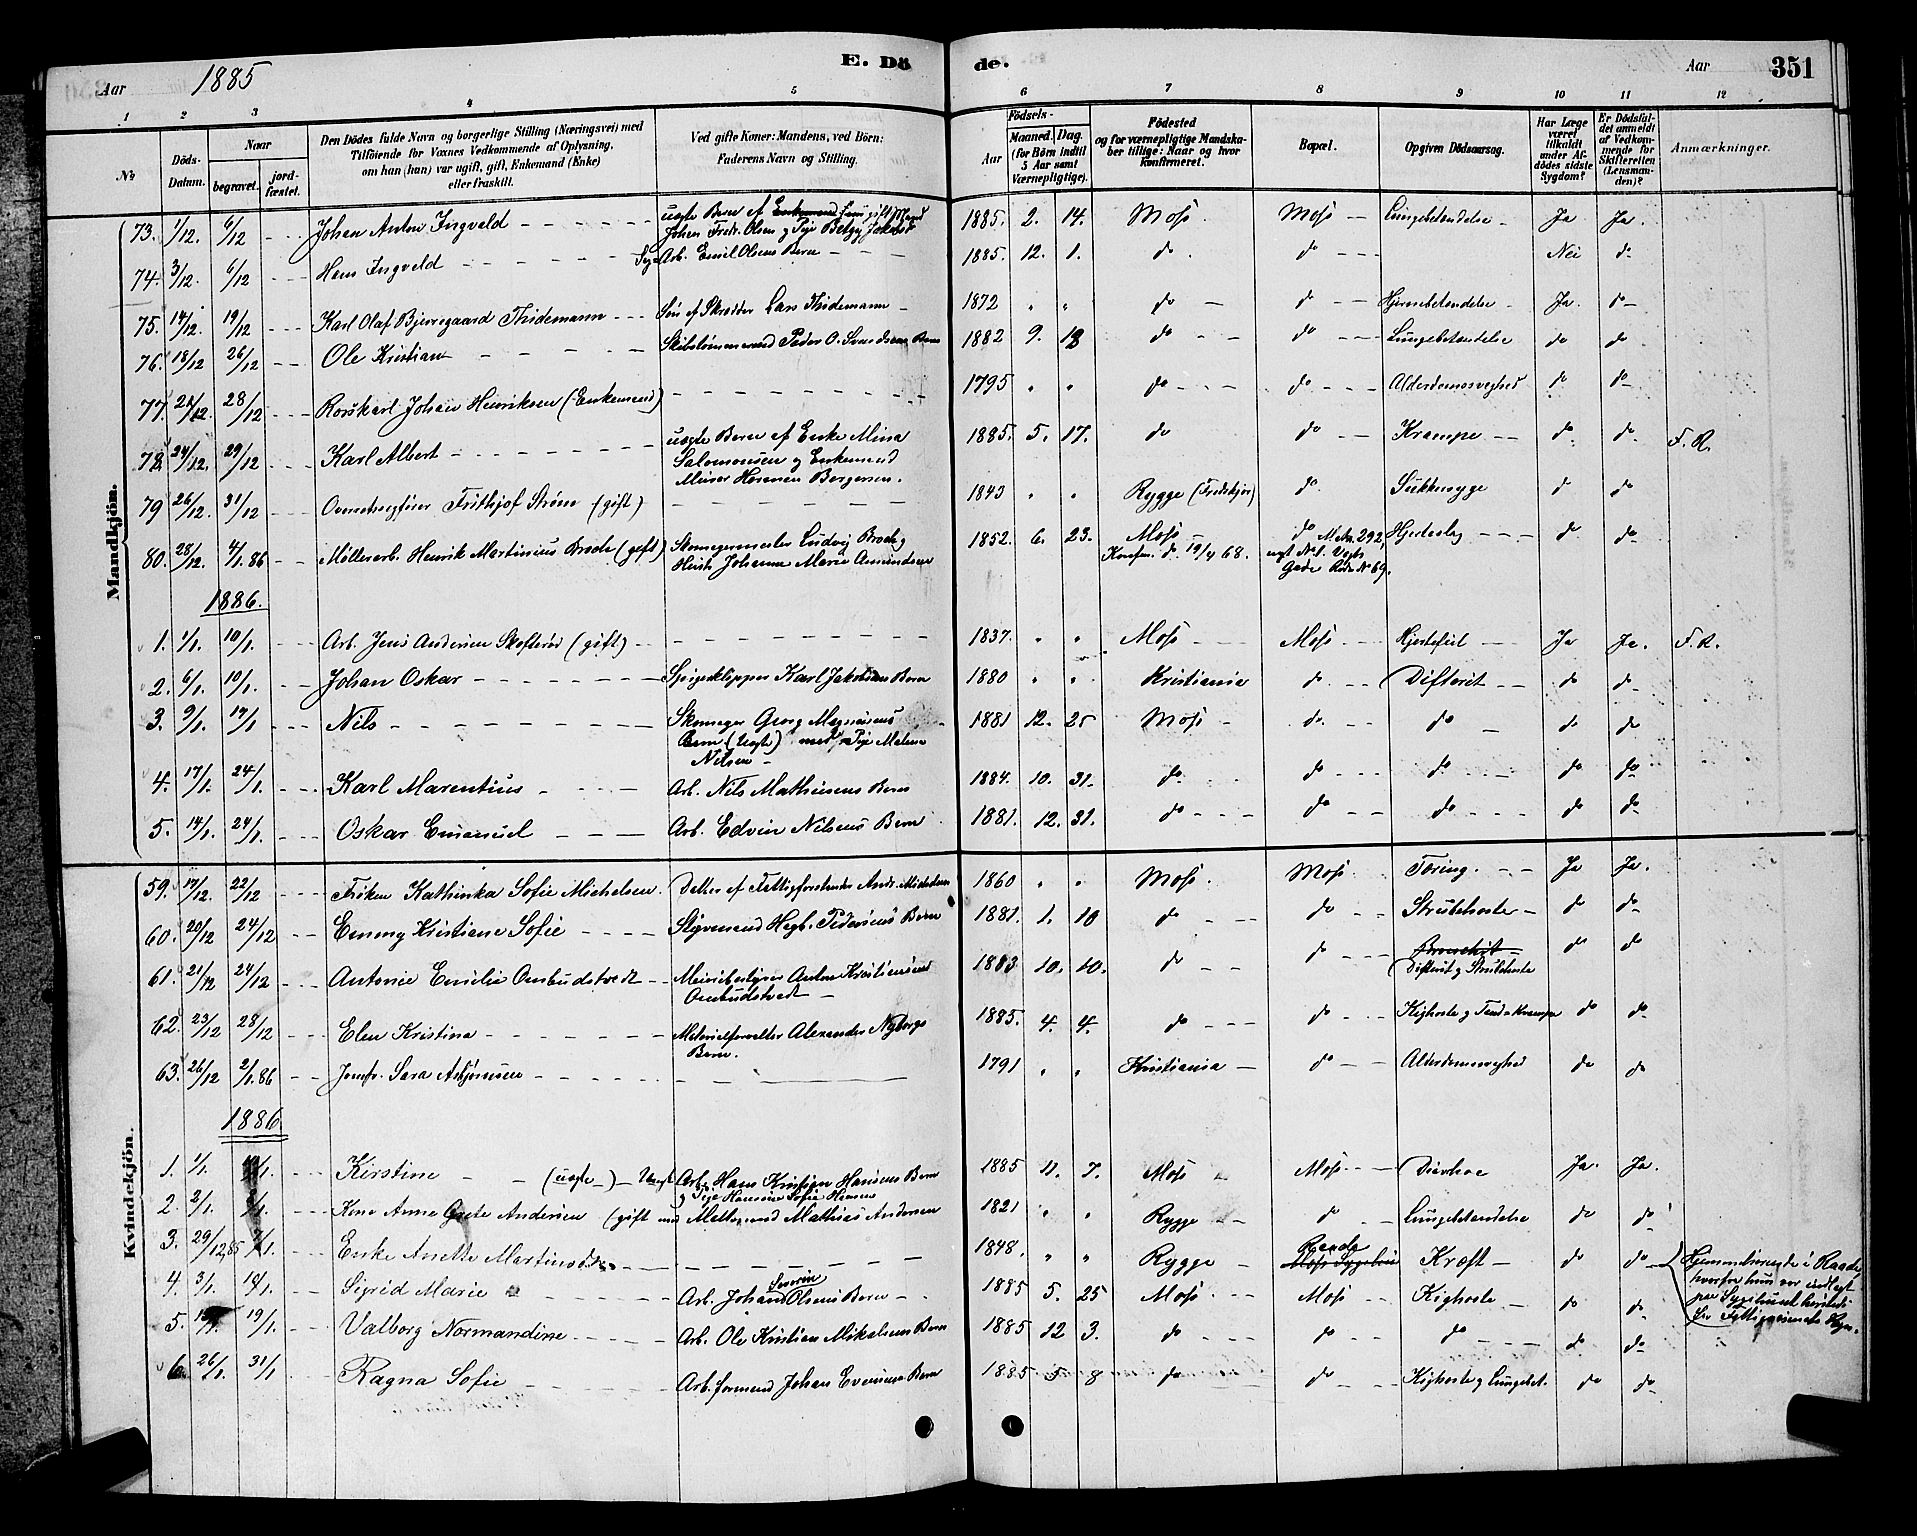 Aar 1885 E. Dö de. Aar 351
1 2 3 4 5 6 7 8 9 10 11 12
No
Döds-Datum.
Naar
begravet. jordfæstet.
Den Dödes fulde Navn og borgerlige Stilling (Næringsvei) med
Tilföiende for Voxnes Vedkommende af Oplysning,
om han (hun) var ugift, gift, Enkemand (Enke)
eller fraskilt.
Ved gifte Koner: Mandens, ved Börn:
Faderens Navn og Stilling.
Födsels-
Aar
Maaned. Dag.
(for Börn indtil
5 Aar samt
Værnepligtige).
Födested
og for værnepligtige Mandska-
ber tillige: Naar og hvor
konfirmeret.
Bopæl.
Opgiven Dödsaarsag.
Har Læge
været
tilkaldt
under Af-
dödes sidste
Sygdom?
Er Dödsfal-
det anmeldt
af Vedkom-
mende for
Skifteretten
(Lensman-
den)?
Anmærkninger.
Mandkjön.
73. 1/12. 6/12 Johan Anton Ingveld uægte Barn af Enkemand gift Mand Johan Fredr. Olsen og Pige 1885. 2. 14. Moss. Moss Lungebetændelse Ja Ja.
74. 3/12. 6/12 Hans Ingveld Arb. Emil Olsens Barn 1885. 12. 1. do. do Nei do
75. 14/12. 19/12 Karl Olaf Bjerregaard Thidemann Søn af Skrædder Lars Thidemann 1872 " " do do Hjernebetændelse Ja. do
76. 18/12 26/12 Ole Kristian Skibstømmermand Peder O. Svendsens Barn 1882 9. 18 do do Lungebetændelse do do
77. 28/12 Rorskarl Johan Henriksen (Enkemand) 1795 " " do do Alderdomssvaghed do do
78. 24/12. 29/12 Karl Albert uægte Barn af Enke Mina
Salomonsen og Enkemand
Murer Herman Borgersen. 1885. 5. 17. do do Krampe do. do. F. R.
79 26/12. 31/12 Fritthjof Strøm (gift) 1843 " " Rygge do. Sukkersyge do do
80. 28/12. 4/1. 86 Møllerarb. Henrik Martinius Brode (gift) Skomagermester Ludvig Brode og
Johanne Marie Amundsen 1852. 6. 23. Moss
Konfm. do. 19/4 68. do M.No. 292,
Gade Rode No 69. Hjerteslag do do
1886.
1. 1/1. 10/1. Arb. Jens Andersen Skofterød (gift) 1837. " " Moss Moss Hjertefeil Ja Ja. F. R.
2. 6/1. 10/1. Johan Oskar Spigerklipper Karl Jakobsens Barn 1880 " " Kristiania do. Difterit do do
3. 9/1. 17/1 Nils Skomager Georg Magnusens
Barn (Uægte) med Pige Malene
Nilsen 1881 12. 25 Moss do. do do do
4. 17/1. 24/1. Karl Marentius Arb. Nils Mathisens Barn 1884. 10. 31. do. do do do do
5. 14/1. 24/1. Oskar Emanuel Arb. Edvin Nilsens Barn 1881. 12. 31. do do do do do
Kvindekjön.
59. 17/12. 22/12 Frøken Kathinka Sofie Michelsen. Datter af Fattigforstander Andr. Michelsen 1860 " " Moss. Moss. Tæring. Ja Ja.
60. 20/12 24/12 Emmy Kristiane Sofie Styrmand Hagb. Pedersens Barn 1881. 1. 10 do do Strubehoste do do
61. 21/12 24/12 Antonie Emilie Ombudstvedt Meieribestyrer Anton Kristiansens
Ombudstvedt 1883 10. 10. do do Bronchit
Difterit og Strubehoste do do
62. 23/12 28/12 Elen Kristina Materialforvalter Alexander Nyborgs
Barn. 1885. 4. 4. do do Kighoste og Tandkrampe do do
63. 26/12 2/1.86 Jomfr. Sara 1791 " " Kristiania do Alderdomssvaghed do do
1886
1. 1/1. Kirstine (uægte) Uægt Arb. Hans Kristian Hansens Barn
og Pige Hansine Sofie Hansen 1885 11. 7. Moss Moss Diarrhoe Ja. Ja.
2. 2/1. Kone Anne Grete Andersen (gift med Mathias Andersen 1821 " " Rygge do. Lungebetændelse do do
3. 29/12.85 7/1. Enke Anette Martinsdtr. 1848. " " Rygge Raade
Moss Sygehus Kræft do do Hjemmehørende i Raade,
hvorfra hun var indlagt
paa Sygehuset hersteds
for Fattigvæsenets Regn.
4. 3/1. 10/1. Sigrid Marie Arb. Johan Severin Olsens Barn 1885 5. 25 Moss Moss Kighoste do do
5. 19/1. Valborg Normandine Arb. Ole Kristian Mikalsens Barn 1885 12 3. do do do do. do
6. 26/1. 31/1 Ragna Sofie Arb.formand Johan Evensens Barn 1885 5 8 do do Kighoste og Lungebet. do do